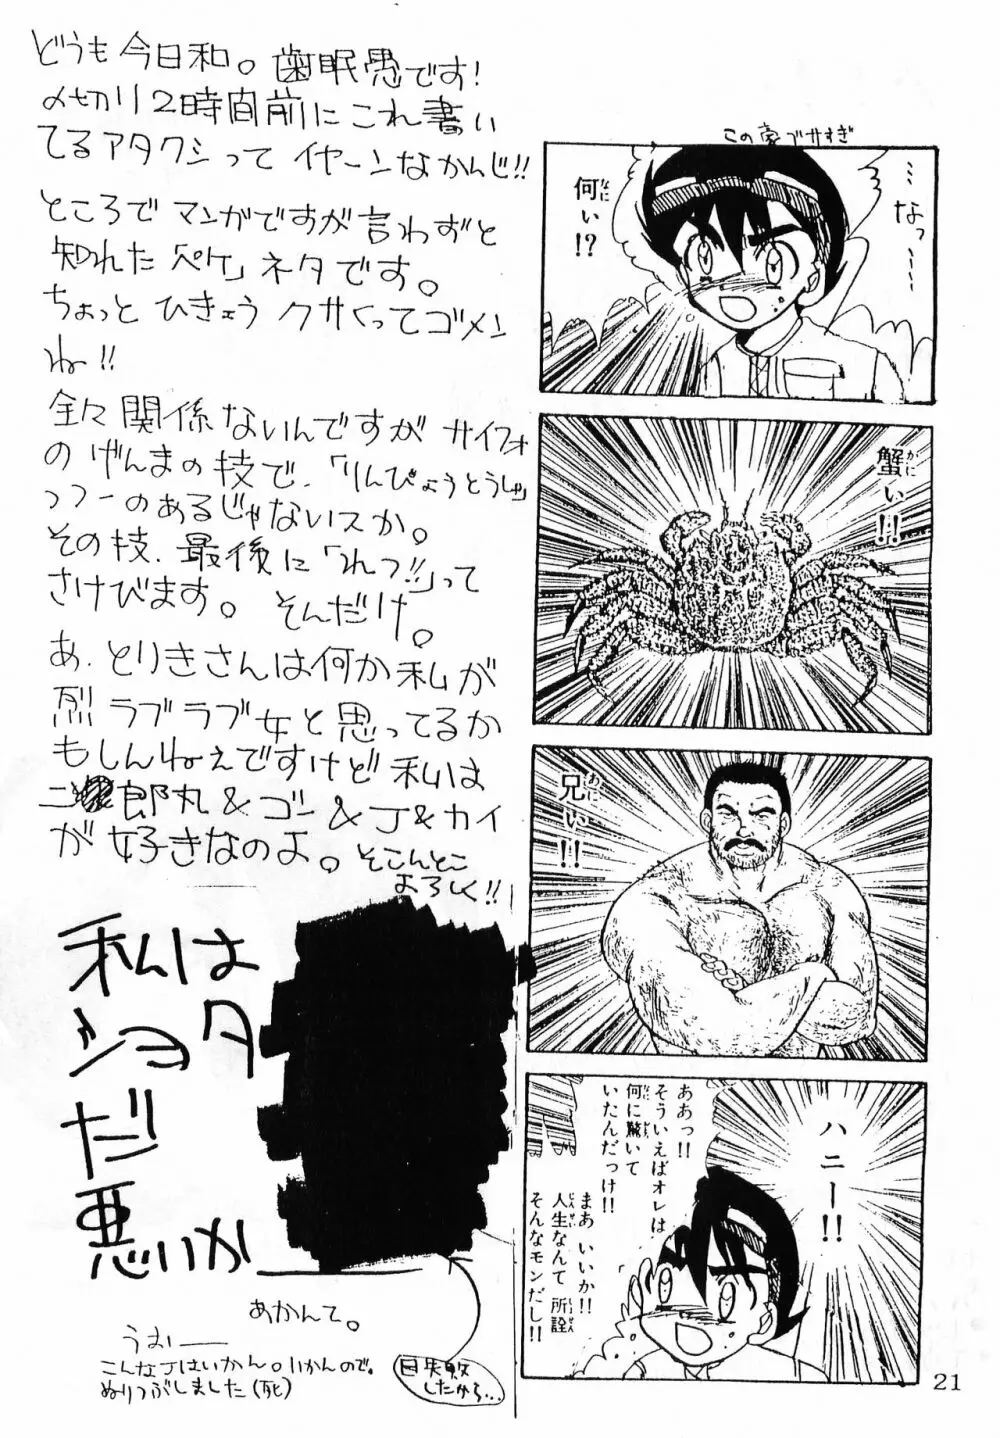 どうも今日和。歯眠愚です!
〆切り2時間前にこれ書い
てるアタクシって イヤーンなかんじ!!
ところで マンガですが言わずと
知れた「ペケ」ネタです。
ちょっと ひきょう クサくってゴメン
ね!!
全々関係ないんですが サイフォ
のげんまの技で、「りんぴょうとうしゃ」
っフーのあるじゃないスか。
その技、最後に「れつ!!」って
さけびます。 そんだけ。
あ、とりきさんは何か私が
烈ラブラブ女と思ってるか
もしんねえですけど私は
二郎丸&ゴン&J&カイ
が好きなのよ。そこんとこ
よろしく!!
私は
ショタ
だ
悪いか
あかんて。
うおー
こんなJはいかん。いかんので。
ぬりつぶしました(死)
目失敗
したから…
この家デカすぎ
…なっ……
何ぃ!?
なに
蟹い!!
かに
兄い!!
あに
ハニー!!
ああっ!!
そういえばオレは
何に驚いて
なに おどろ
いたんだっけ!!
まあ いいか!!
人生なんて 所詮
じんせい しょせん
そんなモンだし!!
21